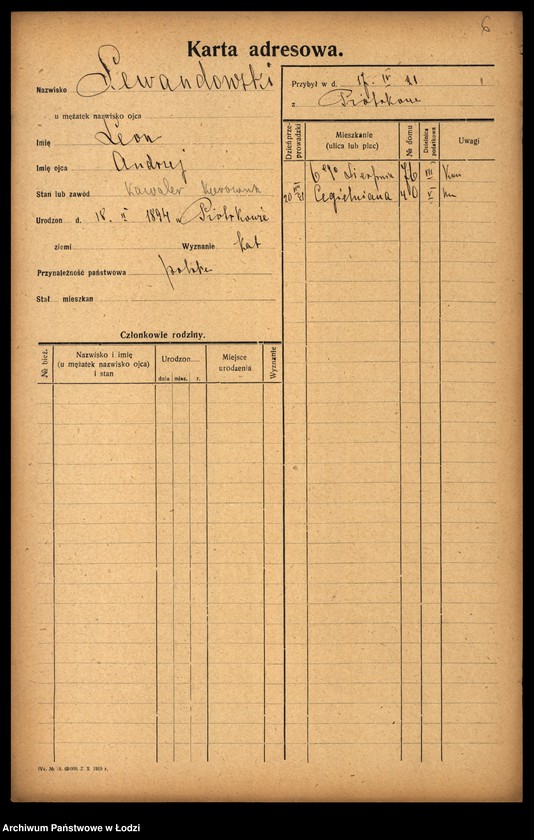 6
Karta adresowa.
Nazwisko Lewandowski
u mężatek nazwisko ojca
Imię Leon
Imię ojca Andrzej
Stan lub zawód Kawaler
Urodzon d. 18. II 1894 w Piotrkowie
ziemi Wyznanie kat
Przynależność państwowa polska
Stał. mieszkan
Przybył w d. 17. IV 21
z Piotrkowa
Dzień przeprowadzki
Mieszkanie
(ulica lub plac)
№ domu
Dzielnica podatkowa
Uwagi
6ego Sierpnia 76 VII
20 VI 21 Cegielniana 40 VI
Członkowie rodziny.
№ bież.
Nazwisko i imię
(u mężatek nazwisko ojca)
i stan
Urodzon
dnia mies. r.
Miejsce
urodzenia
Wyznanie
Archiwum Państwowe w Łodzi